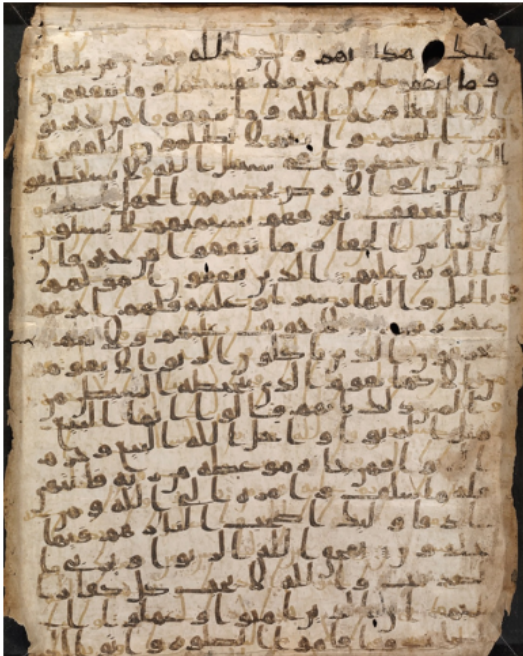 عليك هدىهم ولكن الله يهدي من يشا
وما تنفقوا من خير فلا نفسكم وما تنفقون
الا ابتغا وجه الله وما تنفقوا من خير يو
ف اليكم وانتم لا تظلمون للفقرا
الذين احصروا في سبيل الله لا يستطيعو
ن ضربا في الارض يحسبهم الجهل
من التعفف تعرفهم بسيمهم لا يسلون
الناس الحفا وما تنفقوا من خير فان
الله به عليم الذين ينفقون امولهم
باليل والنهار سرا وعلنيه فلهم اجرهم
عند ربهم ولا خوف عليهم ولا هم
يحزنون الذين ياكلون الربوا لا يقومو
ن الا كما يقوم الذي يتخبطه الشيطن من
المس ذلك بانهم قالوا انما البيع
مثل الربوا واحل الله البيع وحرم
الربوا فمن جاه موعظه من ربه فانتهى
فله ما سلف وامره الى الله ومن
عاد فاوليك اصحب النار هم فيها
خلدون يمحق الله الربوا ويربي
الصدقت والله لا يحب كل كفار ا
ثيم ان الذين امنوا وعملوا
الصلحت واقاموا الصلوه واتوا